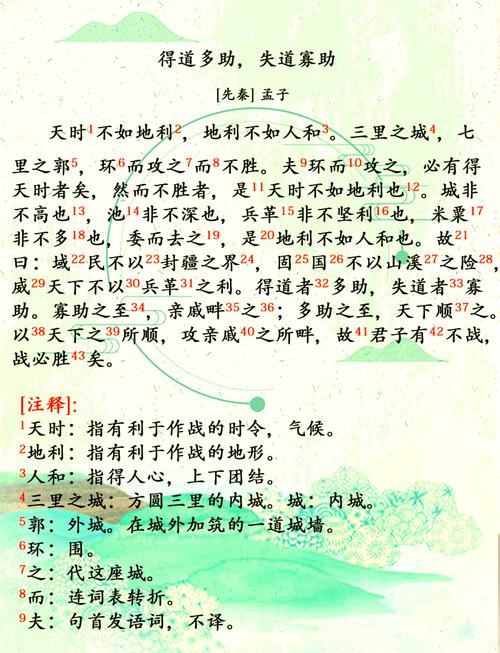 得道多助，失道寡助
[先秦] 孟子
天时1不如地利2，地利不如人和3。三里之城4，七
里之郭5，环6而攻之7而8不胜。夫9环而10攻之，必有得
天时者矣，然而不胜者，是11天时不如地利也12。城非
不高也13，池14非不深也，兵革15非不坚利16也，米粟17
非不多18也，委而去之19，是20地利不如人和也。故21
曰：域22民不以23封疆之界24，固25国26不以山溪27之险28，
威29天下不以30兵革31之利。得道者32多助，失道者33寡
助。寡助之至34，亲戚畔35之36；多助之至，天下顺37之。
以38天下之39所顺，攻亲戚40之所畔，故41君子有42不战，
战必胜43矣。
[注释]：
1天时：指有利于作战的时令，气候。
2地利：指有利于作战的地形。
3人和：指得人心，上下团结。
4三里之城：方圆三里的内城。城：内城。
5郭：外城。在城外加筑的一道城墙。
6环：围。
7之：代这座城。
8而：连词表转折。
9夫：句首发语词，不译。